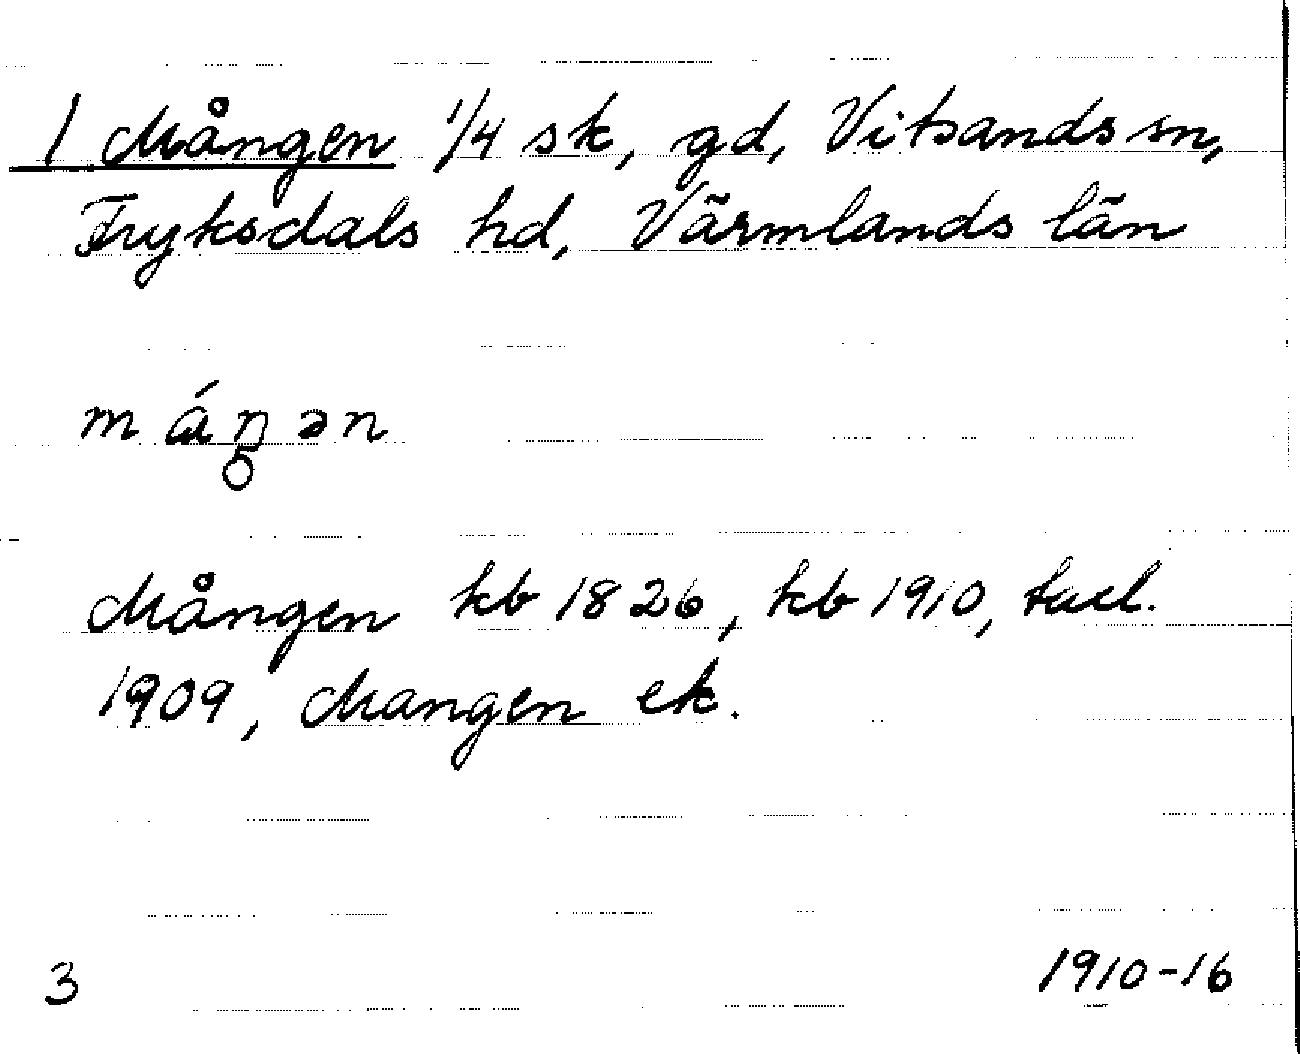 1 Mången 1/4 sk, gd, Vitsands sn,
Fryksdals hd, Värmlands län
m á ŋ̥ ə n
Mången kb 1826, kb 1910,
1909, Mangen ek.
3
1910-16